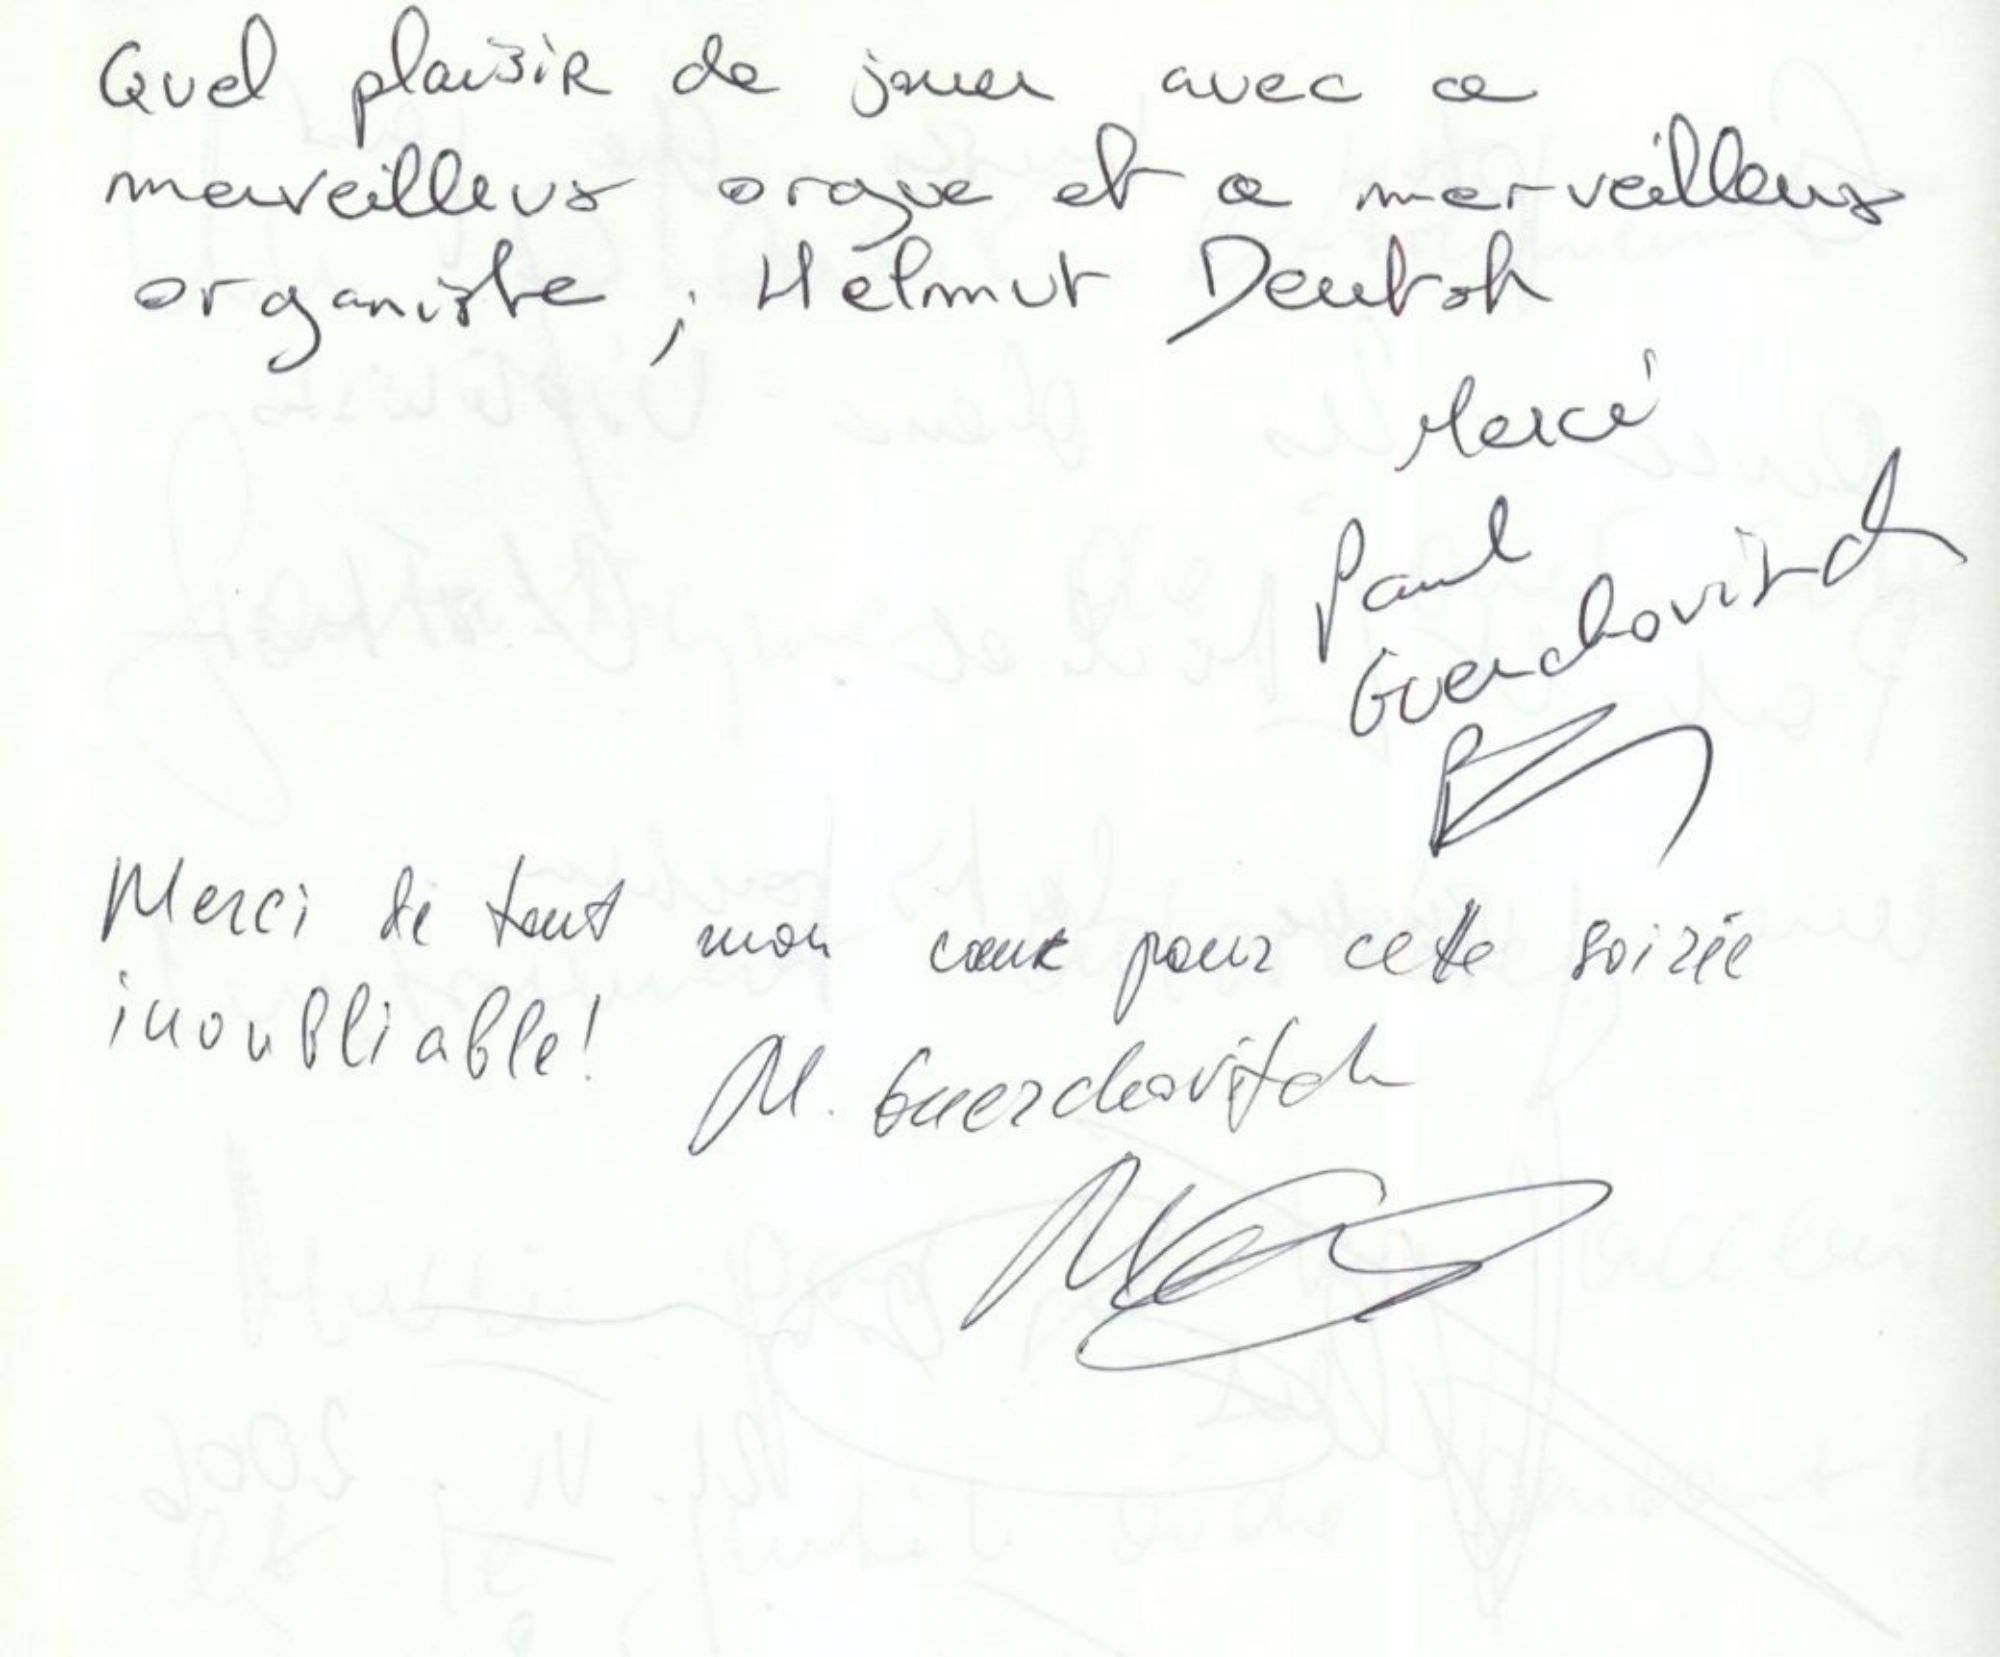 Quel plaisir de jouer avec ce
merveilleux orgue et ce merveilleux
organiste, Helmut Deutsh
Merci
Paul
Guerchovitch
Merci de tout mon cœur pour cette soirée
inoubliable!
M. Guerchovitch